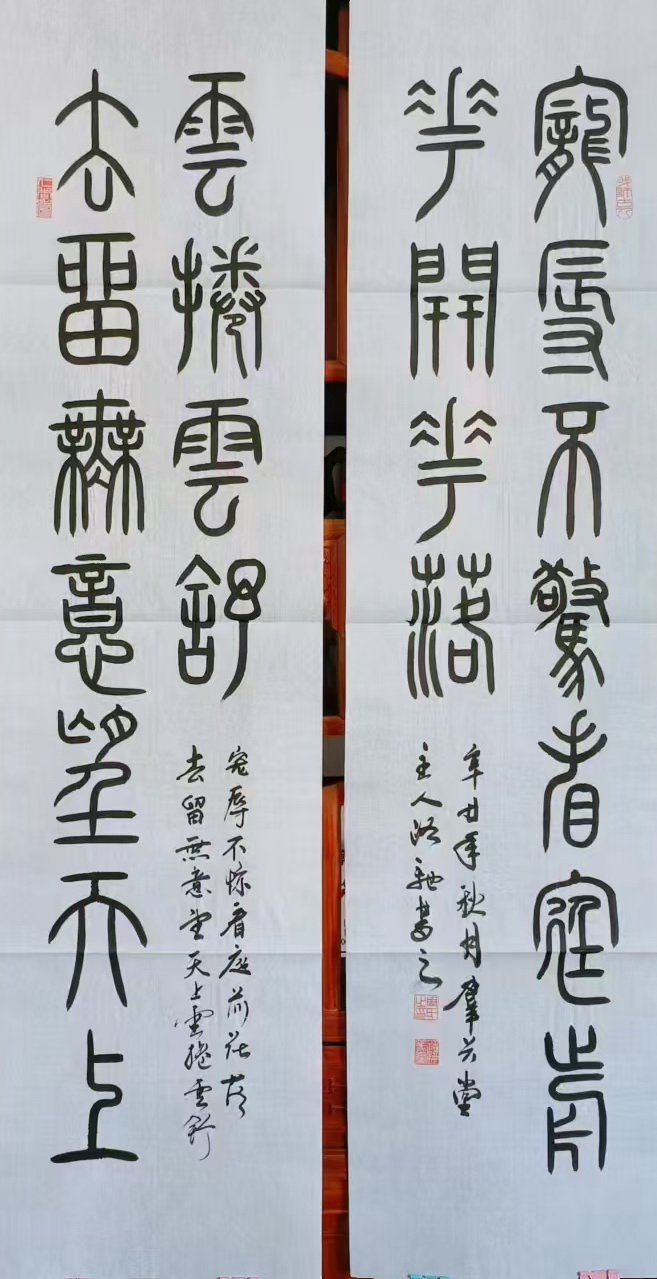 寵辱不驚看庭前
花開花落
辛丑年秋月堂
主人路驰書之
去留無意望天上
雲捲雲舒
宠辱不惊看庭前花落
去留無意望天上雲捲雲舒